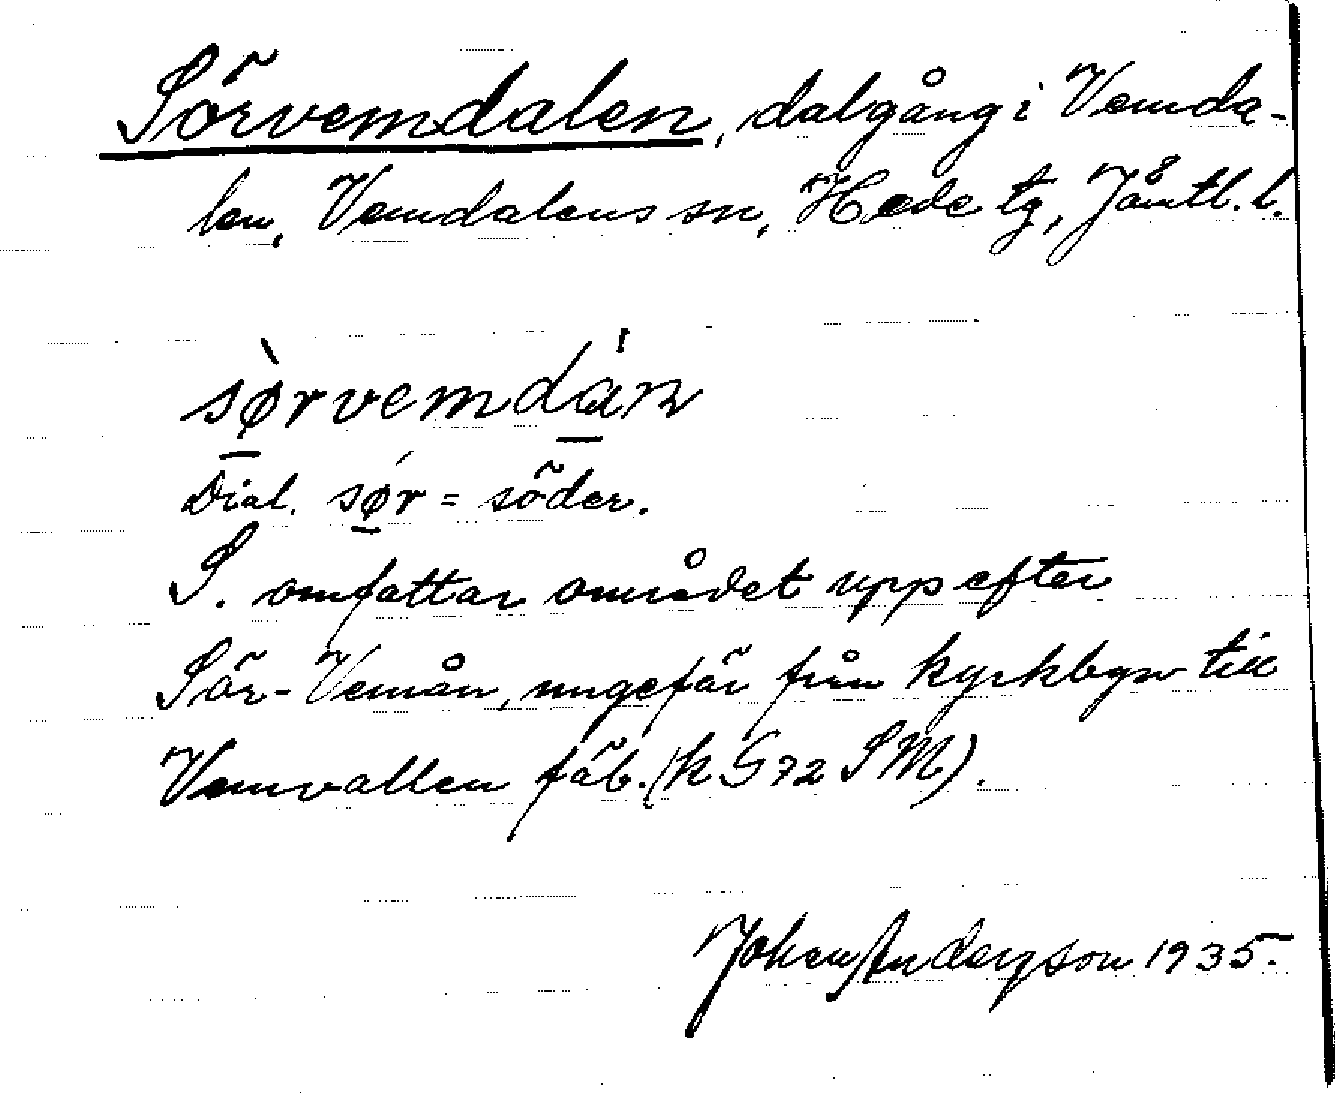 Sörvemdalen, dalgång i Vemda-
len, Vemdalens sn, Hede tg, Jämtl. l.
sørvemdán
Dial. sør = söder.
S. omfattar området upp efter
Sör-Vemån, ungefär från kyrkbyn till
Vemvallen fäb. (k G 72 SM).
Johan Andersson 1935.